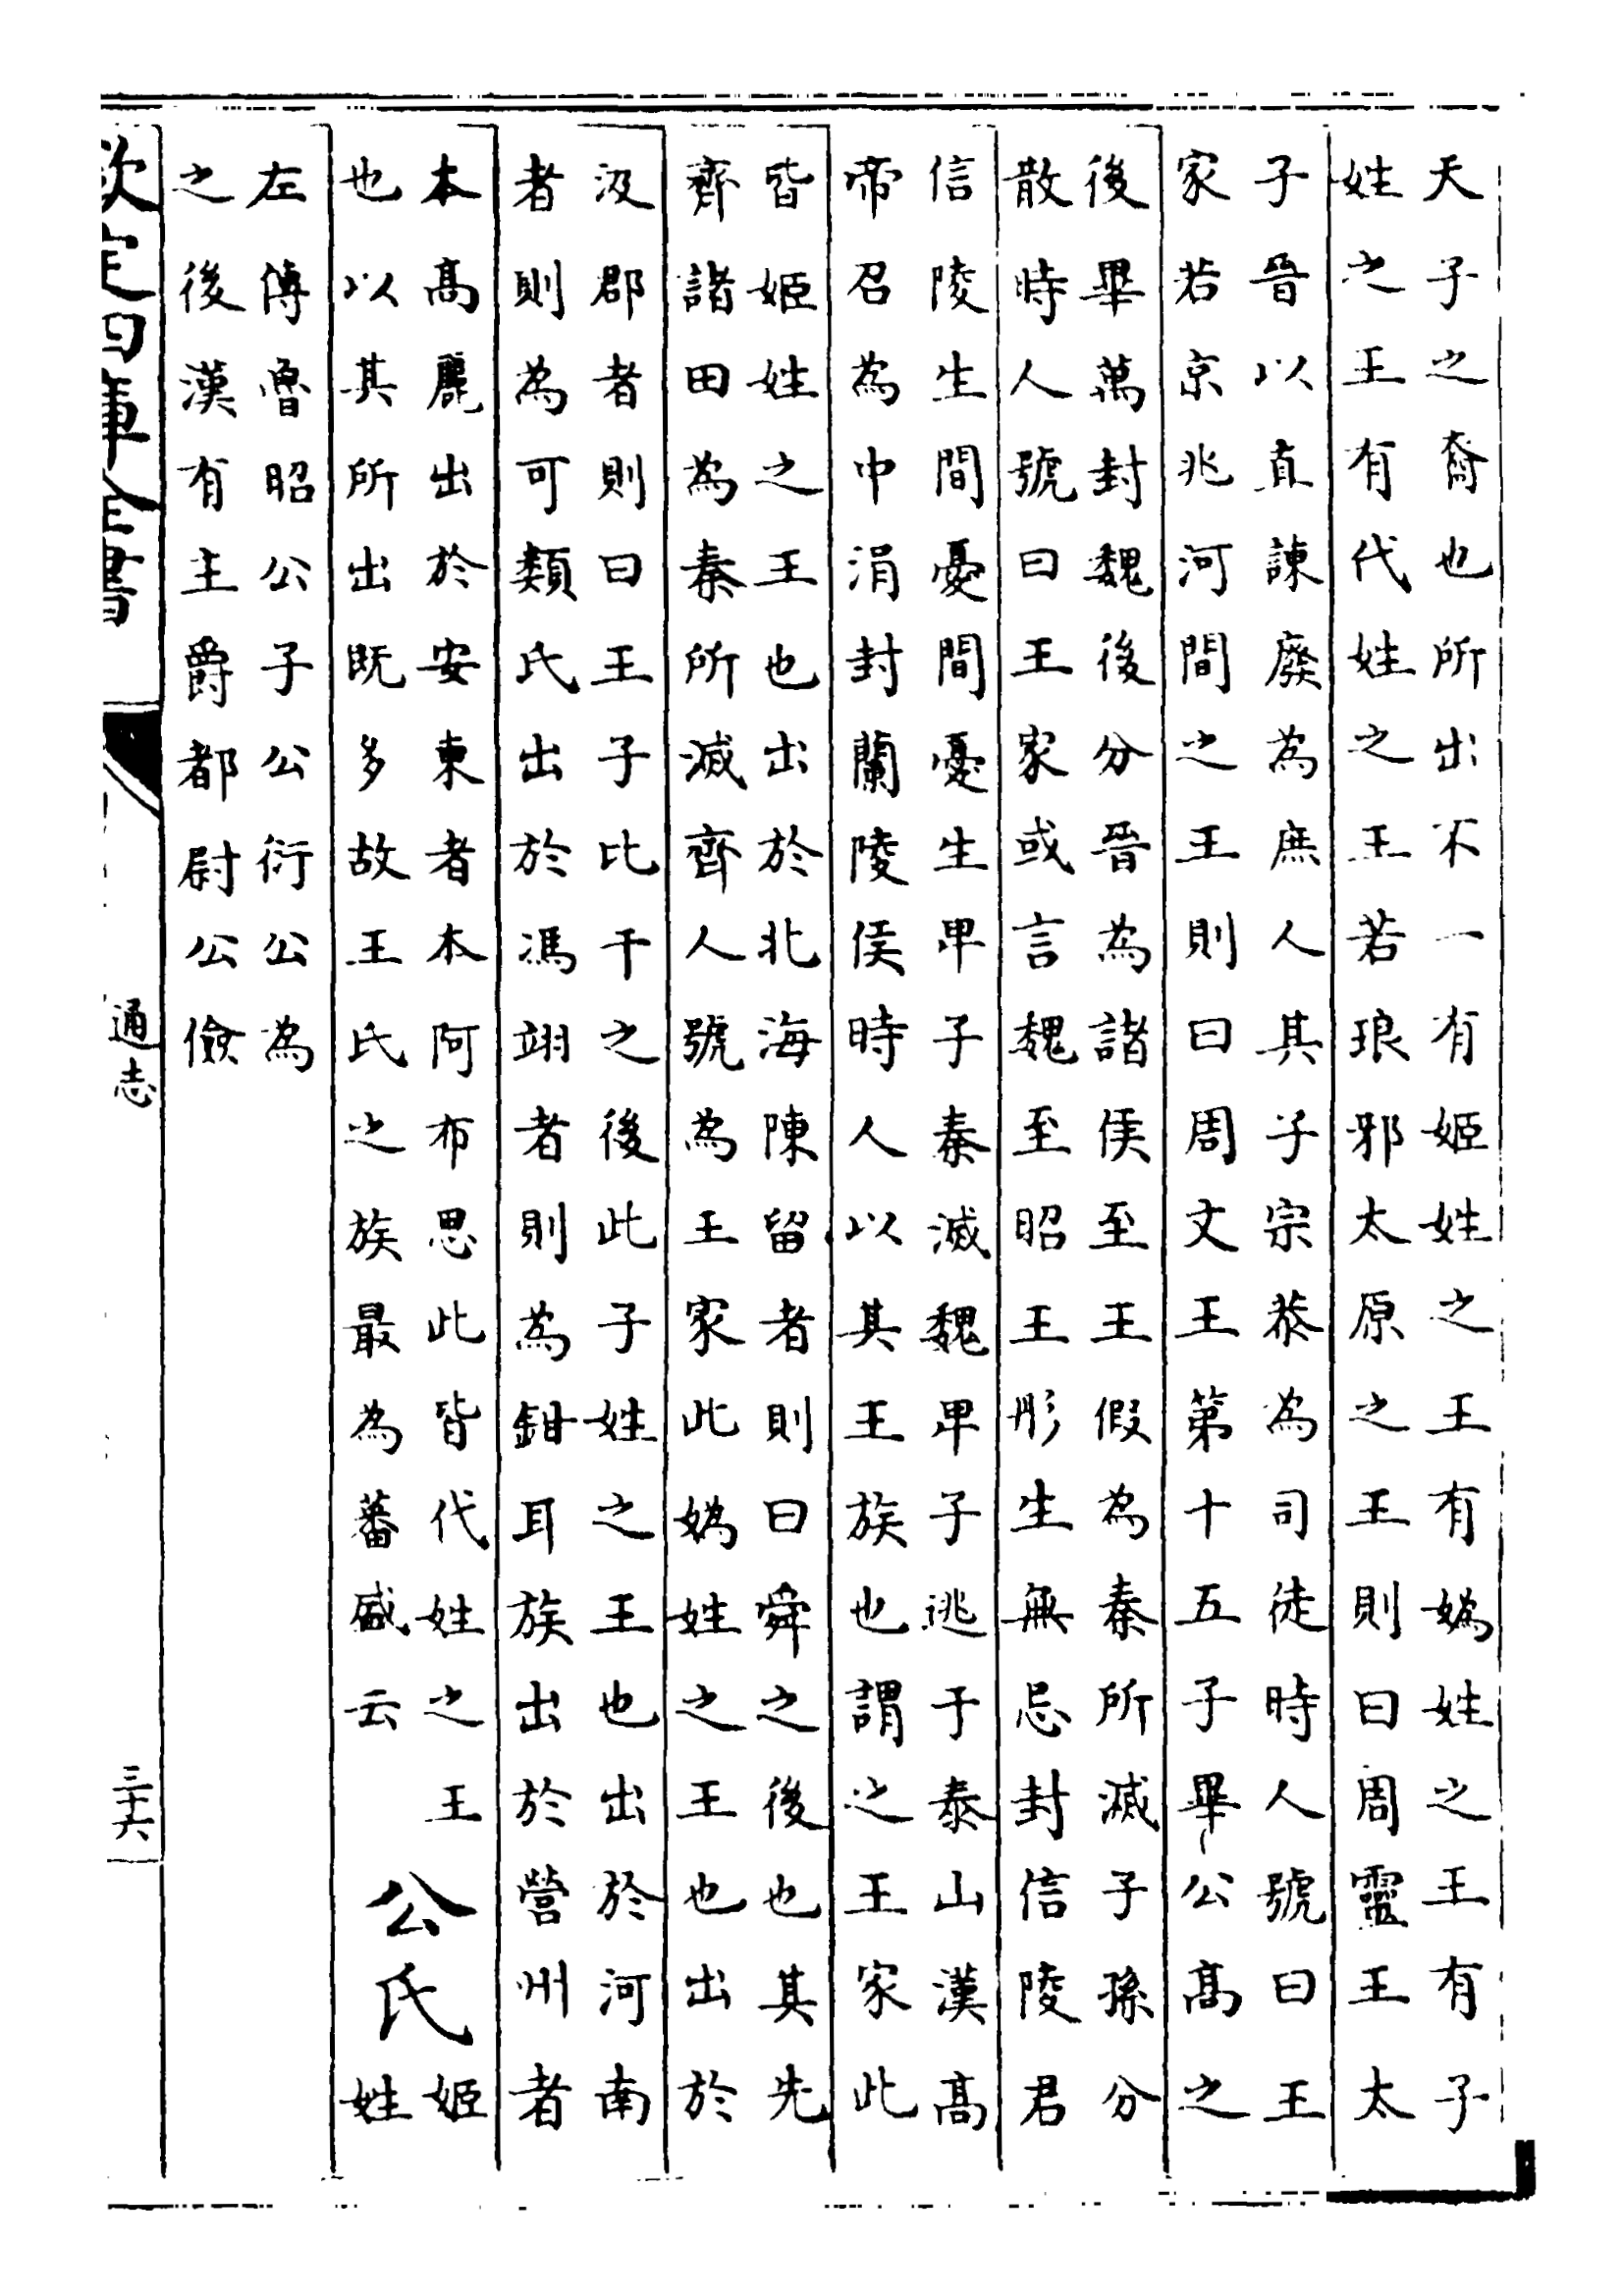 天子之裔也所出不一有姬姓之王有媯姓之王有子
姓之王有代姓之王若琅邪太原之王則曰周靈王太
子晉以直諫廢為庶人其子宗恭為司徒時人號曰王
家若京兆河間之王則曰周文王第十五子畢公高之
後畢萬封魏後分晉為諸侯至王假為秦所滅子孫分
散時人號曰王家或言魏至昭王彤生無忌封信陵君
信陵生間憂間憂生卑子秦滅魏卑子逃于泰山漢高
帝召為中涓封蘭陵侯時人以其王族也謂之王家此
皆姬姓之王也出於北海陳留者則曰舜之後也其先
齊諸田為秦所滅齊人號為王家此媯姓之王也出於
汲郡者則曰王子比干之後此子姓之王也出於河南
者則為可類氏出於馮翊者則為鉗耳族出於營州者
本高麗出於安東者本阿布思此皆代姓之王
也以其所出既多故王氏之族最為蕃盛云
公氏
姬
姓
左傳魯昭公子公衍公為
之後漢有主爵都尉公儉
欽定四庫全書
通志
三十六